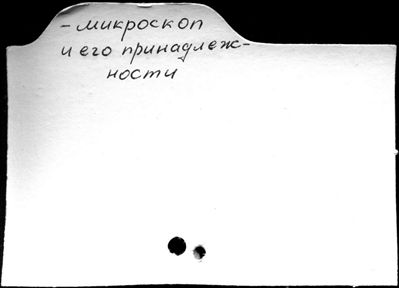 - микроскоп
и его принадлеж-
ности